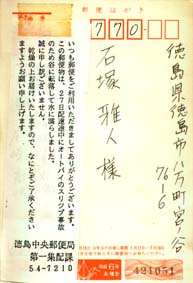 郵便はがき
770-
徳島県徳島市八万町宮ノ谷
76-6
石塚雅人様
いつも郵便をご利用いただきましてありがとうございます。
この郵便物は、27日配達途中にオートバイのスリップ事故
のため谷に転落して水に濡らしました。
誠に申し訳ございません。
乾燥の上お届けいたしますので、なにとぞご了承ください
ますようお願い申し上げます。
徳島中央郵便局
第一集配課
54-7210
平成6年
421051